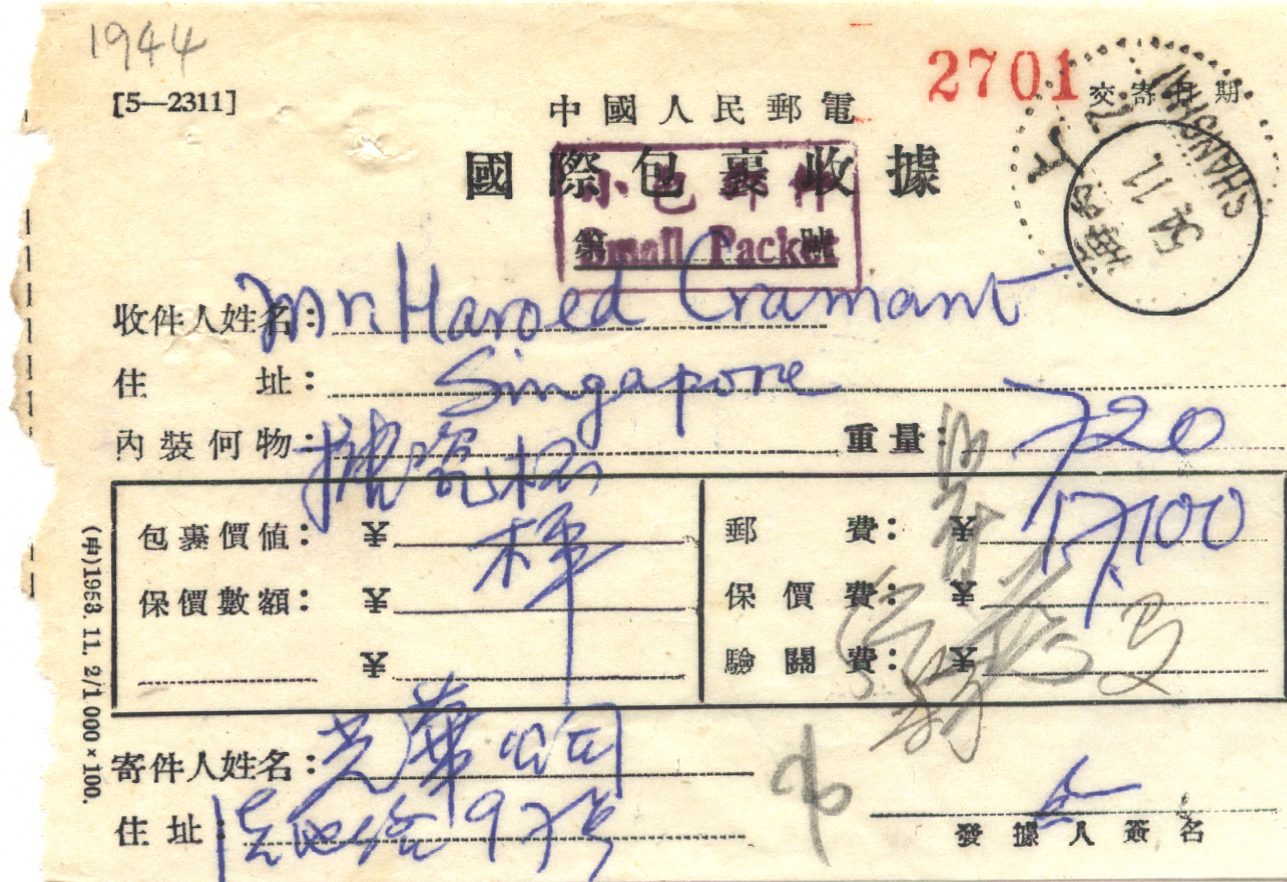 1944
[5—2311]
2701
交寄日期
中國人民郵電
國際包裹收據
小包郵件
Small Packet
第 號
上海
54.11.
SHANGHAI
收件人姓名: Mr. Harold Cramant
住址: Singapore
內裝何物:
重量: 720
包裹價值: 
郵費: 17,100
保價數額:
保價費:
驗關費:
寄件人姓名: 光華公司
住址: 97号
發據人簽名
(申)1953. 11. 2/1,000×100.